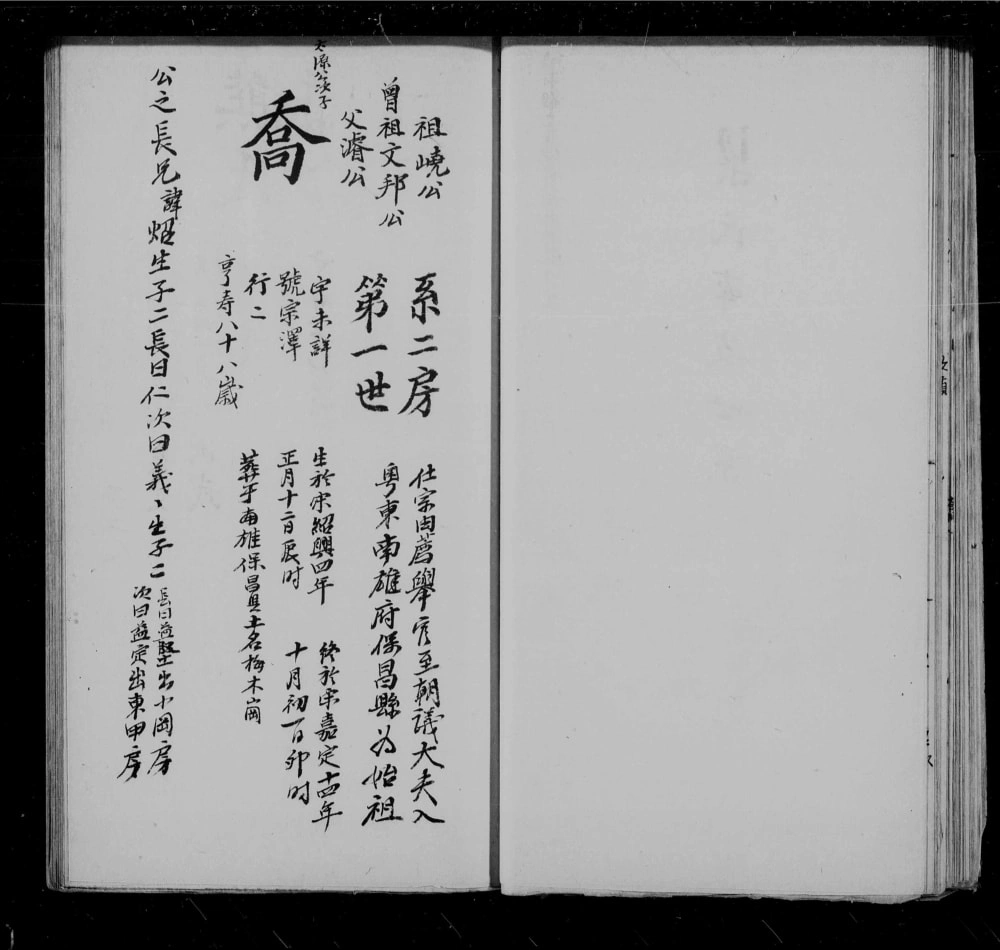 曾祖文邦公
祖嶢公
父濬公
喬
系二房
第一世
字未詳
號宗澤
行二
享寿八十八歲
仕宗由薦舉官至朝議大夫入
粵東南雄府保昌縣为始祖
生於宋紹興四年
正月十二日辰时
終於宋嘉定十四年
十月初一日卯时
葬于南雄保昌具土名梅木崗
公之長兄諱炤生子二長曰仁次曰義〻生子二
長曰益堅出小岡房
次曰益定出東甲房